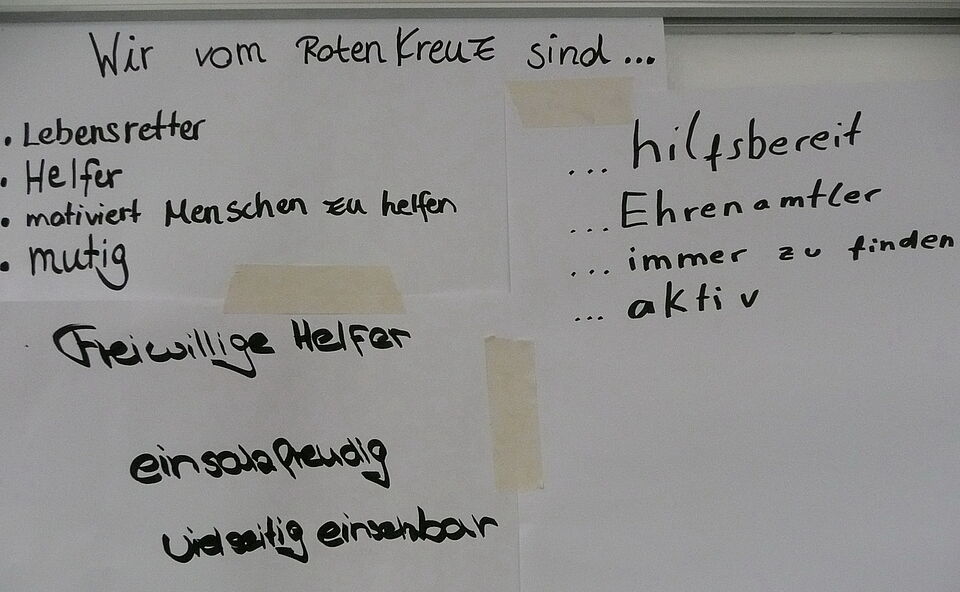 Wir vom Roten Kreuz sind...
• Lebensretter
• Helfer
• motiviert Menschen zu helfen
• mutig
... hilfsbereit
... Ehrenamtler
... immer zu finden
... aktiv
Freiwillige Helfer
einsatzfreudig
vielseitig einsetzbar